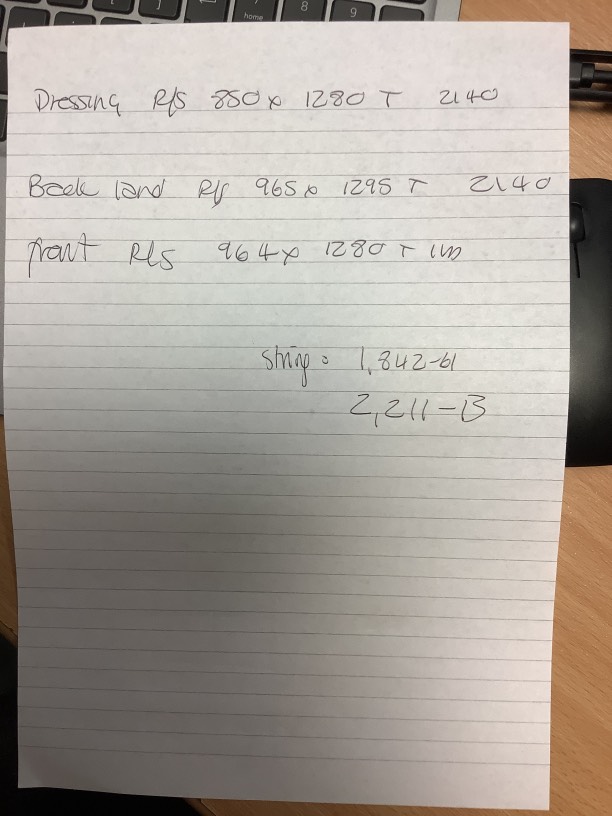 home 8 9
Dressing R/S 850 x 1280 T 2140
Back land R/S 965 x 1295 T 2140
front R/S 964 x 1280 T
String: 1,842-61
2,211-13